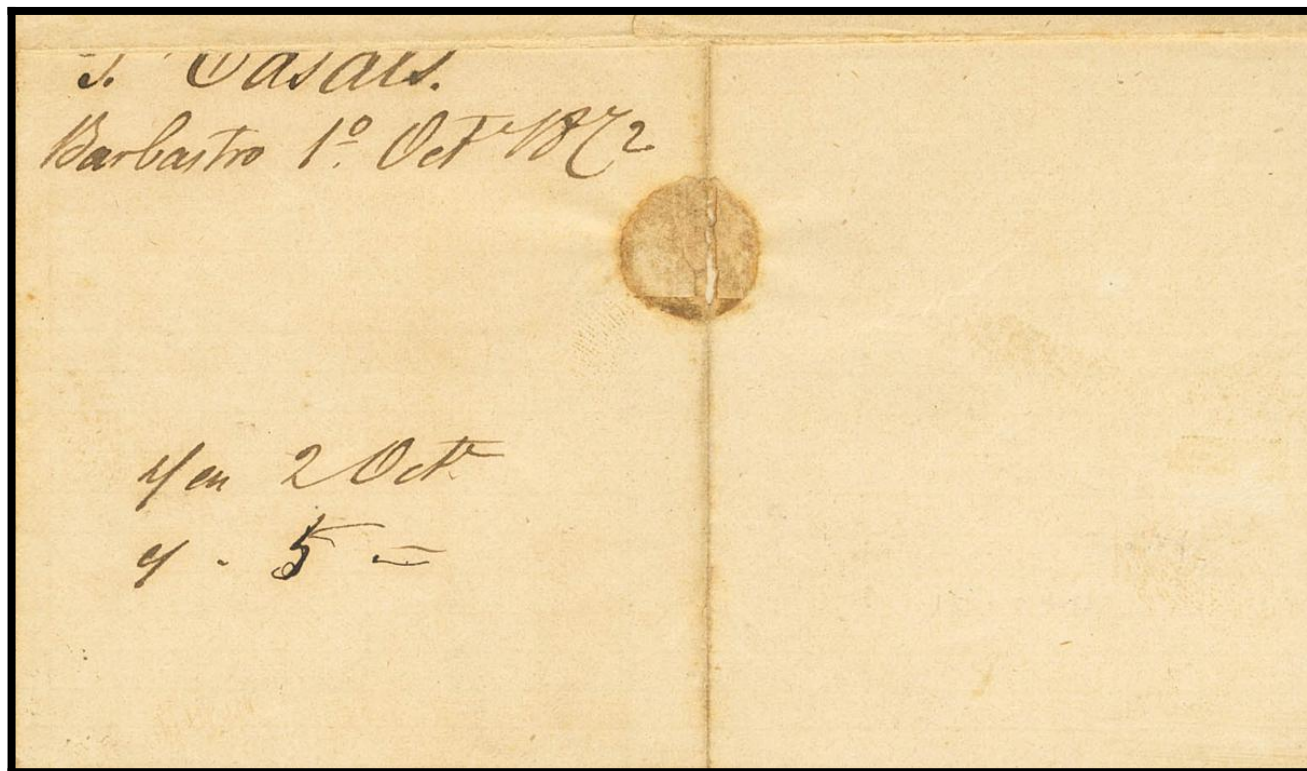 Casals.
Barbastro 1º Octe 1872
y en 2 Octe
y - 5 =